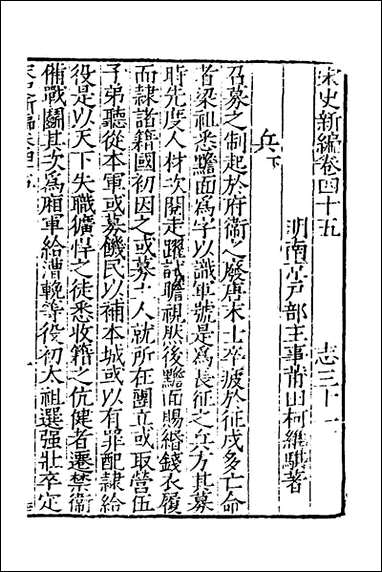 宋史新編卷四十五　志三十一
明南京戶部主事莆田柯維騏著
兵下
召募之制起於府衛之廢唐末士卒疲於征戍多亡命
者梁祖悉黵面為字以識軍號是為長征之兵方其募
時先度人材次閱走躍試瞻視然後黵面賜緡錢衣履
而隸諸籍國初因之或募土人就所在團立或取營伍
子弟聽從本軍或募饑民以補本城或以有罪配隸給
役是以天下失職獷悍之徒悉收籍之伉健者遷禁衛
備戰鬬其次為廂軍給漕輓等役初太祖選强壯卒定